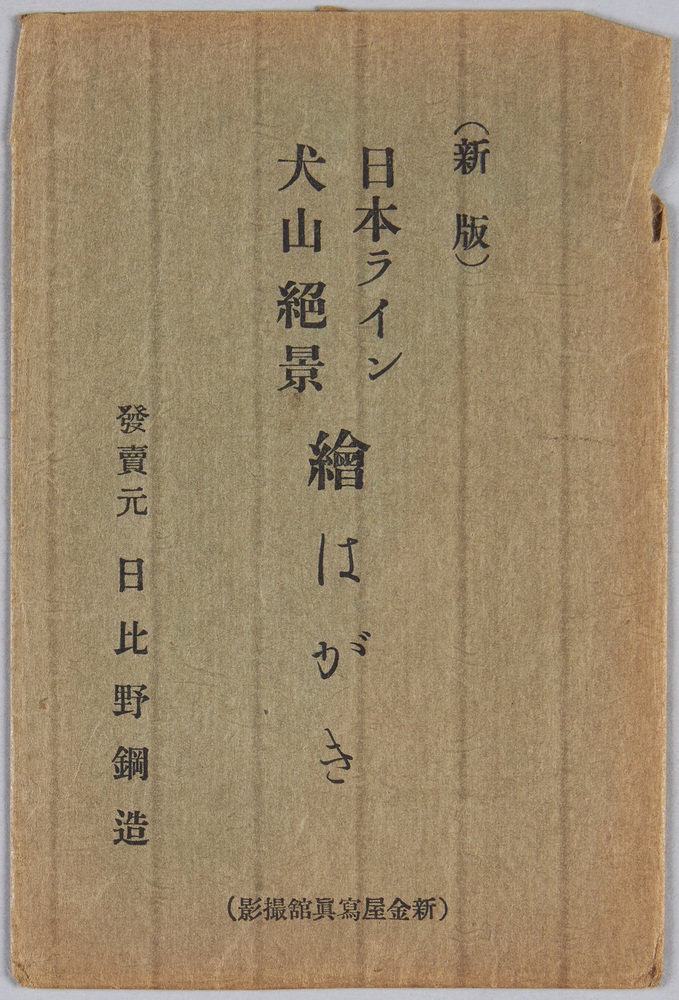 (新版)
日本ライン
犬山絕景
繪はがき
發賣元 日比野鋼造
(新金屋寫眞舘撮影)